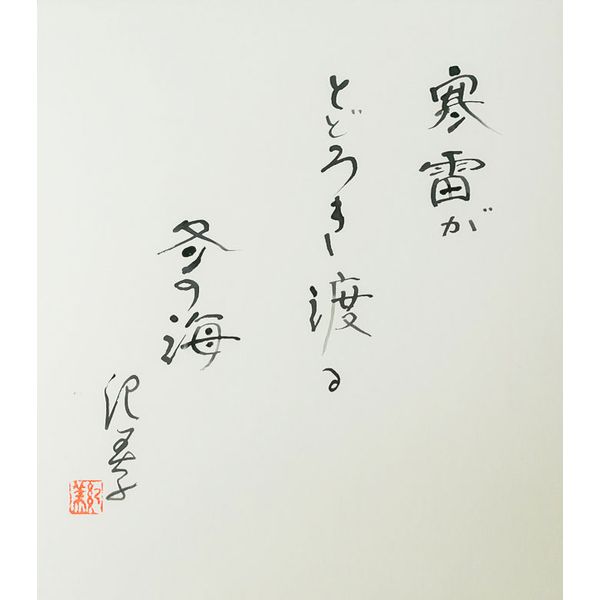 寒雷が
とどろき渡る
冬の海